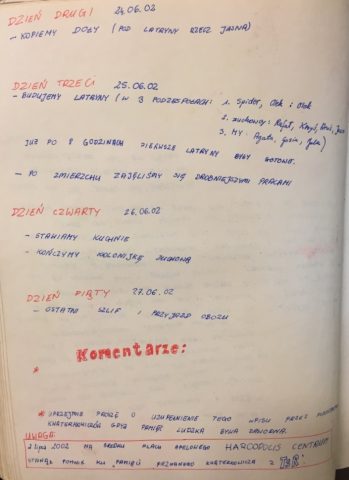 DZIEŃ DRUGI 24.06.02
- KOPIEMY DOŁY (POD LATRYNY RZECZ JASNA)
DZIEŃ TRZECI 25.06.02
- BUDUJEMY LATRYNY (W 3 PODZESPOŁACH: 1. Spider, Olek i Olek
2. zuchowcy: Rafał,
3. MY: Agata, Gosia,
JUŻ PO 8 GODZINACH PIERWSZE LATRYNY BYŁY GOTOWE.
- PO ZMIERZCHU ZAJĘLIŚMY SIĘ DROBNIEJSZYMI PRACAMI
DZIEŃ CZWARTY 26.06.02
- STAWIAMY KUCHNIE
- KOŃCZYMY KOLONIJKĘ ZUCHOWĄ
DZIEŃ PIĄTY 27.06.02
- OSTATNI SZLIF I PRZYJAZD OBOZU
Komentarze:
*
* UPRZEJMIE PROSZĘ O UZUPEŁNIENIE TEGO WPISU PRZEZ
KWATERMISTRZA GDYŻ PAMIĘĆ LUDZKA BYWA ZAWODNA.
UWAGA:
2 lipca 2002 NA ŚRODKU PLACU APELOWEGO HARCOPOLIS CENTRUM
POMNIK KU PAMIĘCI KWATERMISTRZA Z